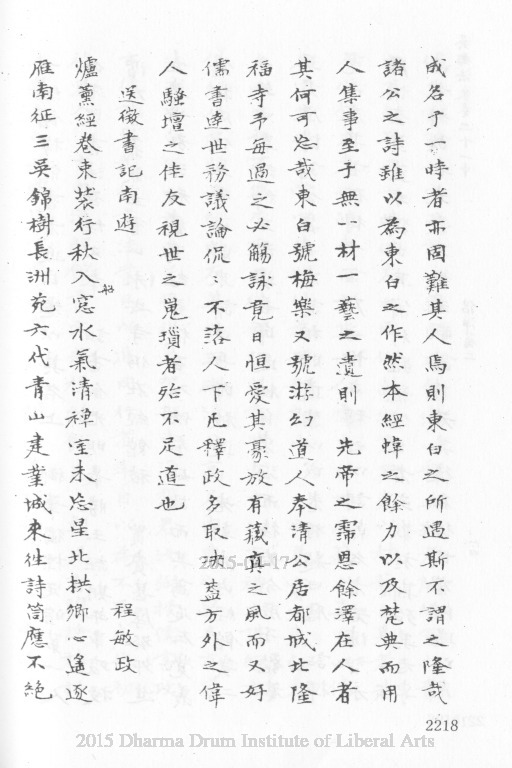 成名于一時者亦固難其人焉則東白之所遇斯不謂之隆哉
諸公之詩雖以為東白之作然本經幃之餘力以及梵典而用
人集事至于無材一藝之遺則先帝之霈恩餘澤在人者
其何可忘哉東白號梅樂又號游幻道人奉清公居都城北隆
福寺予每過之必觴詠竟日恒愛其豪放有藏真之風而又好
儒書達世務議論侃侃不落人下凡釋政多取決蓋方外之偉
人騷壇之佳友視世之嵬瑣者殆不足道也
送徽書記南遊
程敏政
爐薰經卷束裝行秋入窓水氣清禪室未忘星北拱鄉心遙逐
雁南征三吳錦樹長洲苑六代青山建業城來往詩筒應不絕
2218
2015-01-17
2015 Dharma Drum Institute of Liberal Arts